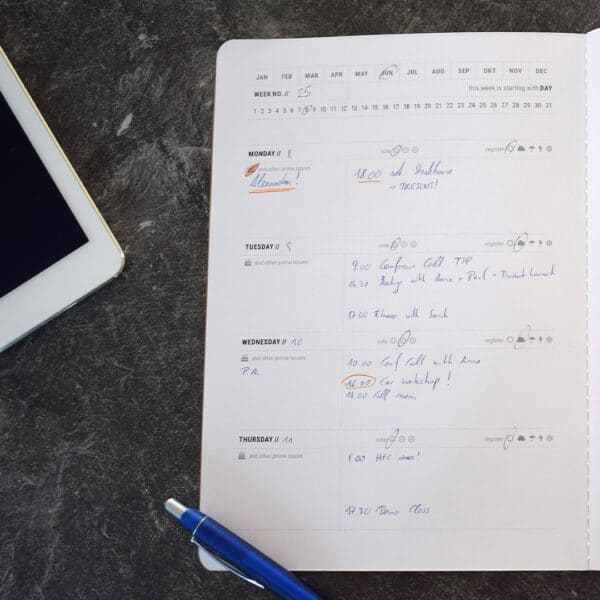 JAN FEB MAR APR MAY JUN JUL AUG SEP OKT NOV DEC
WEEK NO. // 25 this week is starting with DAY
1 2 3 4 5 6 7 8 9 10 11 12 13 14 15 16 17 18 19 20 21 22 23 24 25 26 27 28 29 30 31
MONDAY // 8 vote register
and other prime issues
Alexandra!
18.00 at Steakhouse
→ PRESENT!
TUESDAY // 9 vote register
and other prime issues
9.00 Conference Call TTP
Meeting with Anne + Paul - Product Launch
17.00 Fitness with Sarah
WEDNESDAY // 10 vote register
and other prime issues
P.A.
10.00 Conf Call with Anne
16.00 Car workshop!
18.00 Call mom
THURSDAY // 11 vote register
and other prime issues
9.00
17.30 Dance Class